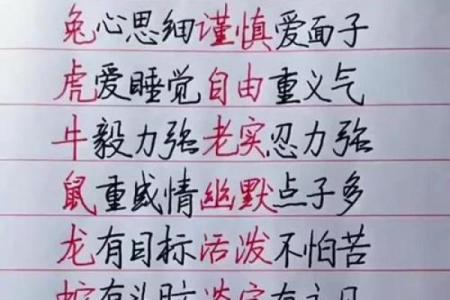 兔心思细谨慎爱面子
虎爱睡觉自由重义气
牛毅力强老实忍力强
鼠重感情幽默点子多
龙有目标活泼不怕苦
蛇有头脑淡定有主见